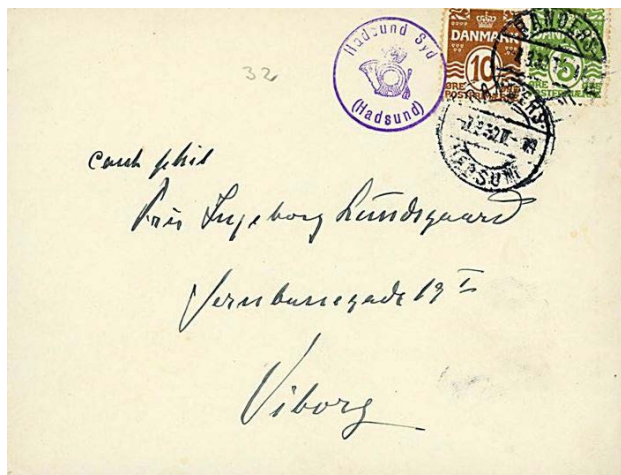 Hadsund Syd
(Hadsund)
DANMARK
10
ØRE
POSTFRIM
5
ØRE
RANDERS
32
cand phil
Frk Ingeborg Lundsgaard
Jernbanegade 19 I
Viborg